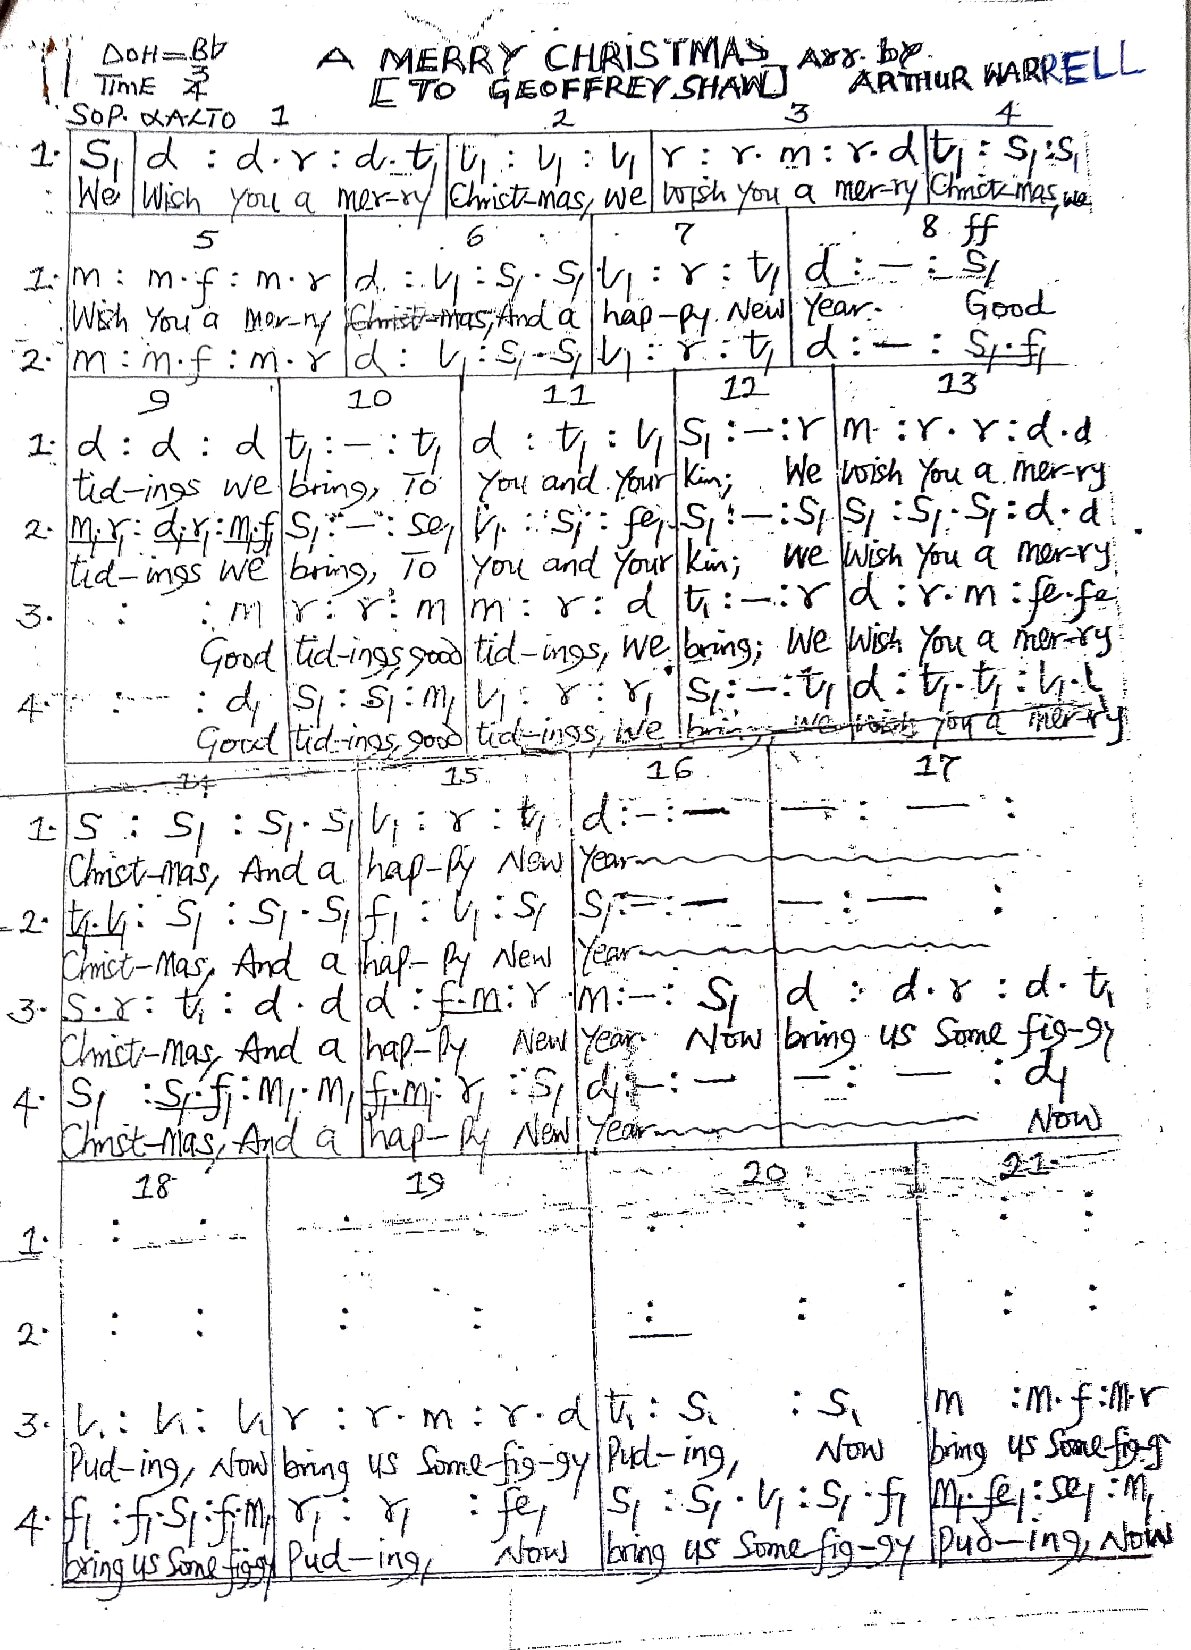 DOH=Bb
TIME 3/4
A MERRY CHRISTMAS Arr. by
[TO GEOFFREY SHAW] ARTHUR WARRELL
SOP. & ALTO 1 2 3 4
1. S₁ | d : d.r : d.t₁ | l₁ : l₁ : l₁ | r : r.m : r.d | t₁ : s₁ : s₁
We | Wish you a mer-ry | Christ-mas, we | wish you a mer-ry | Christ-mas, we
5 6 7 8 ff
1. m : m.f : m.r | d : l₁ : s₁.s₁ | l₁ : r : t₁ | d : — : s₁
Wish You a mer-ry | Christ-mas, And a | hap-py New | Year. Good
2. m : m.f : m.r | d : l₁ : s₁.s₁ | l₁ : r : t₁ | d : — : s₁.f₁
9 10 11 12 13
1. d : d : d | t₁ : — : t₁ | d : t₁ : l₁ | s₁ : — : r | m : r.r : d.d
tid-ings we | bring, To | you and your | kin; We | wish you a mer-ry
2. m₁.r₁ : d₁.r₁ : m₁.f₁ | s₁ : — : se₁ | l₁ : s₁ : fe₁ | s₁ : — : s₁ | s₁ : s₁.s₁ : d.d
tid-ings we | bring, To | you and your | kin; we | wish you a mer-ry
3. : : m | r : r : m | m : r : d | t₁ : — : r | d : r.m : fe.fe
Good | tid-ings, good | tid-ings, we | bring; We | Wish you a mer-ry
4. : — : d₁ | s₁ : s₁ : m₁ | l₁ : r : r₁ | s₁ : — : t₁ | d : t₁.t₁ : l₁.l
Good | tid-ings, good | tid-ings, we | bring, we wish you a mer-ry
14 15 16 17
1. s : s₁ : s₁.s₁ | l₁ : r : t₁ | d : - : — | — : — :
Christ-mas, And a | hap-py New | Year
2. t₁.l₁ : s₁ : s₁.s₁ | f₁ : l₁ : s₁ | s₁ : - : — | — : — :
Christ-mas, And a | hap-py New | Year
3. s.r : t₁ : d.d | d : f.m : r | m : - : s₁ | d : d.r : d.t₁
Christ-mas, And a | hap-py New | Year. Now | bring us some fig-gy
4. s₁ : s₁.f₁ : m₁.m₁ | f₁.m₁ : r₁ : s₁ | d₁ : - : — | — : — : d₁
Christ-mas, And a | hap-py New | Year Now
18 19 20 21
1. : : | : : | : : | : :
2. : : | : : | : : | : :
3. l₁ : l₁ : l₁ | r : r.m : r.d | t₁ : s₁ : s₁ | m : m.f : m.r
Pud-ing, Now | bring us some fig-gy | Pud-ing, Now | bring us some fig-g
4. f₁ : f₁.s₁ : f₁.m₁ | r₁ : r₁ : fe₁ | s₁ : s₁.l₁ : s₁.f₁ | m₁.fe₁ : se₁ : m₁
bring us some figgy | Pud-ing, Now | bring us some fig-gy | Pud-ing, Now